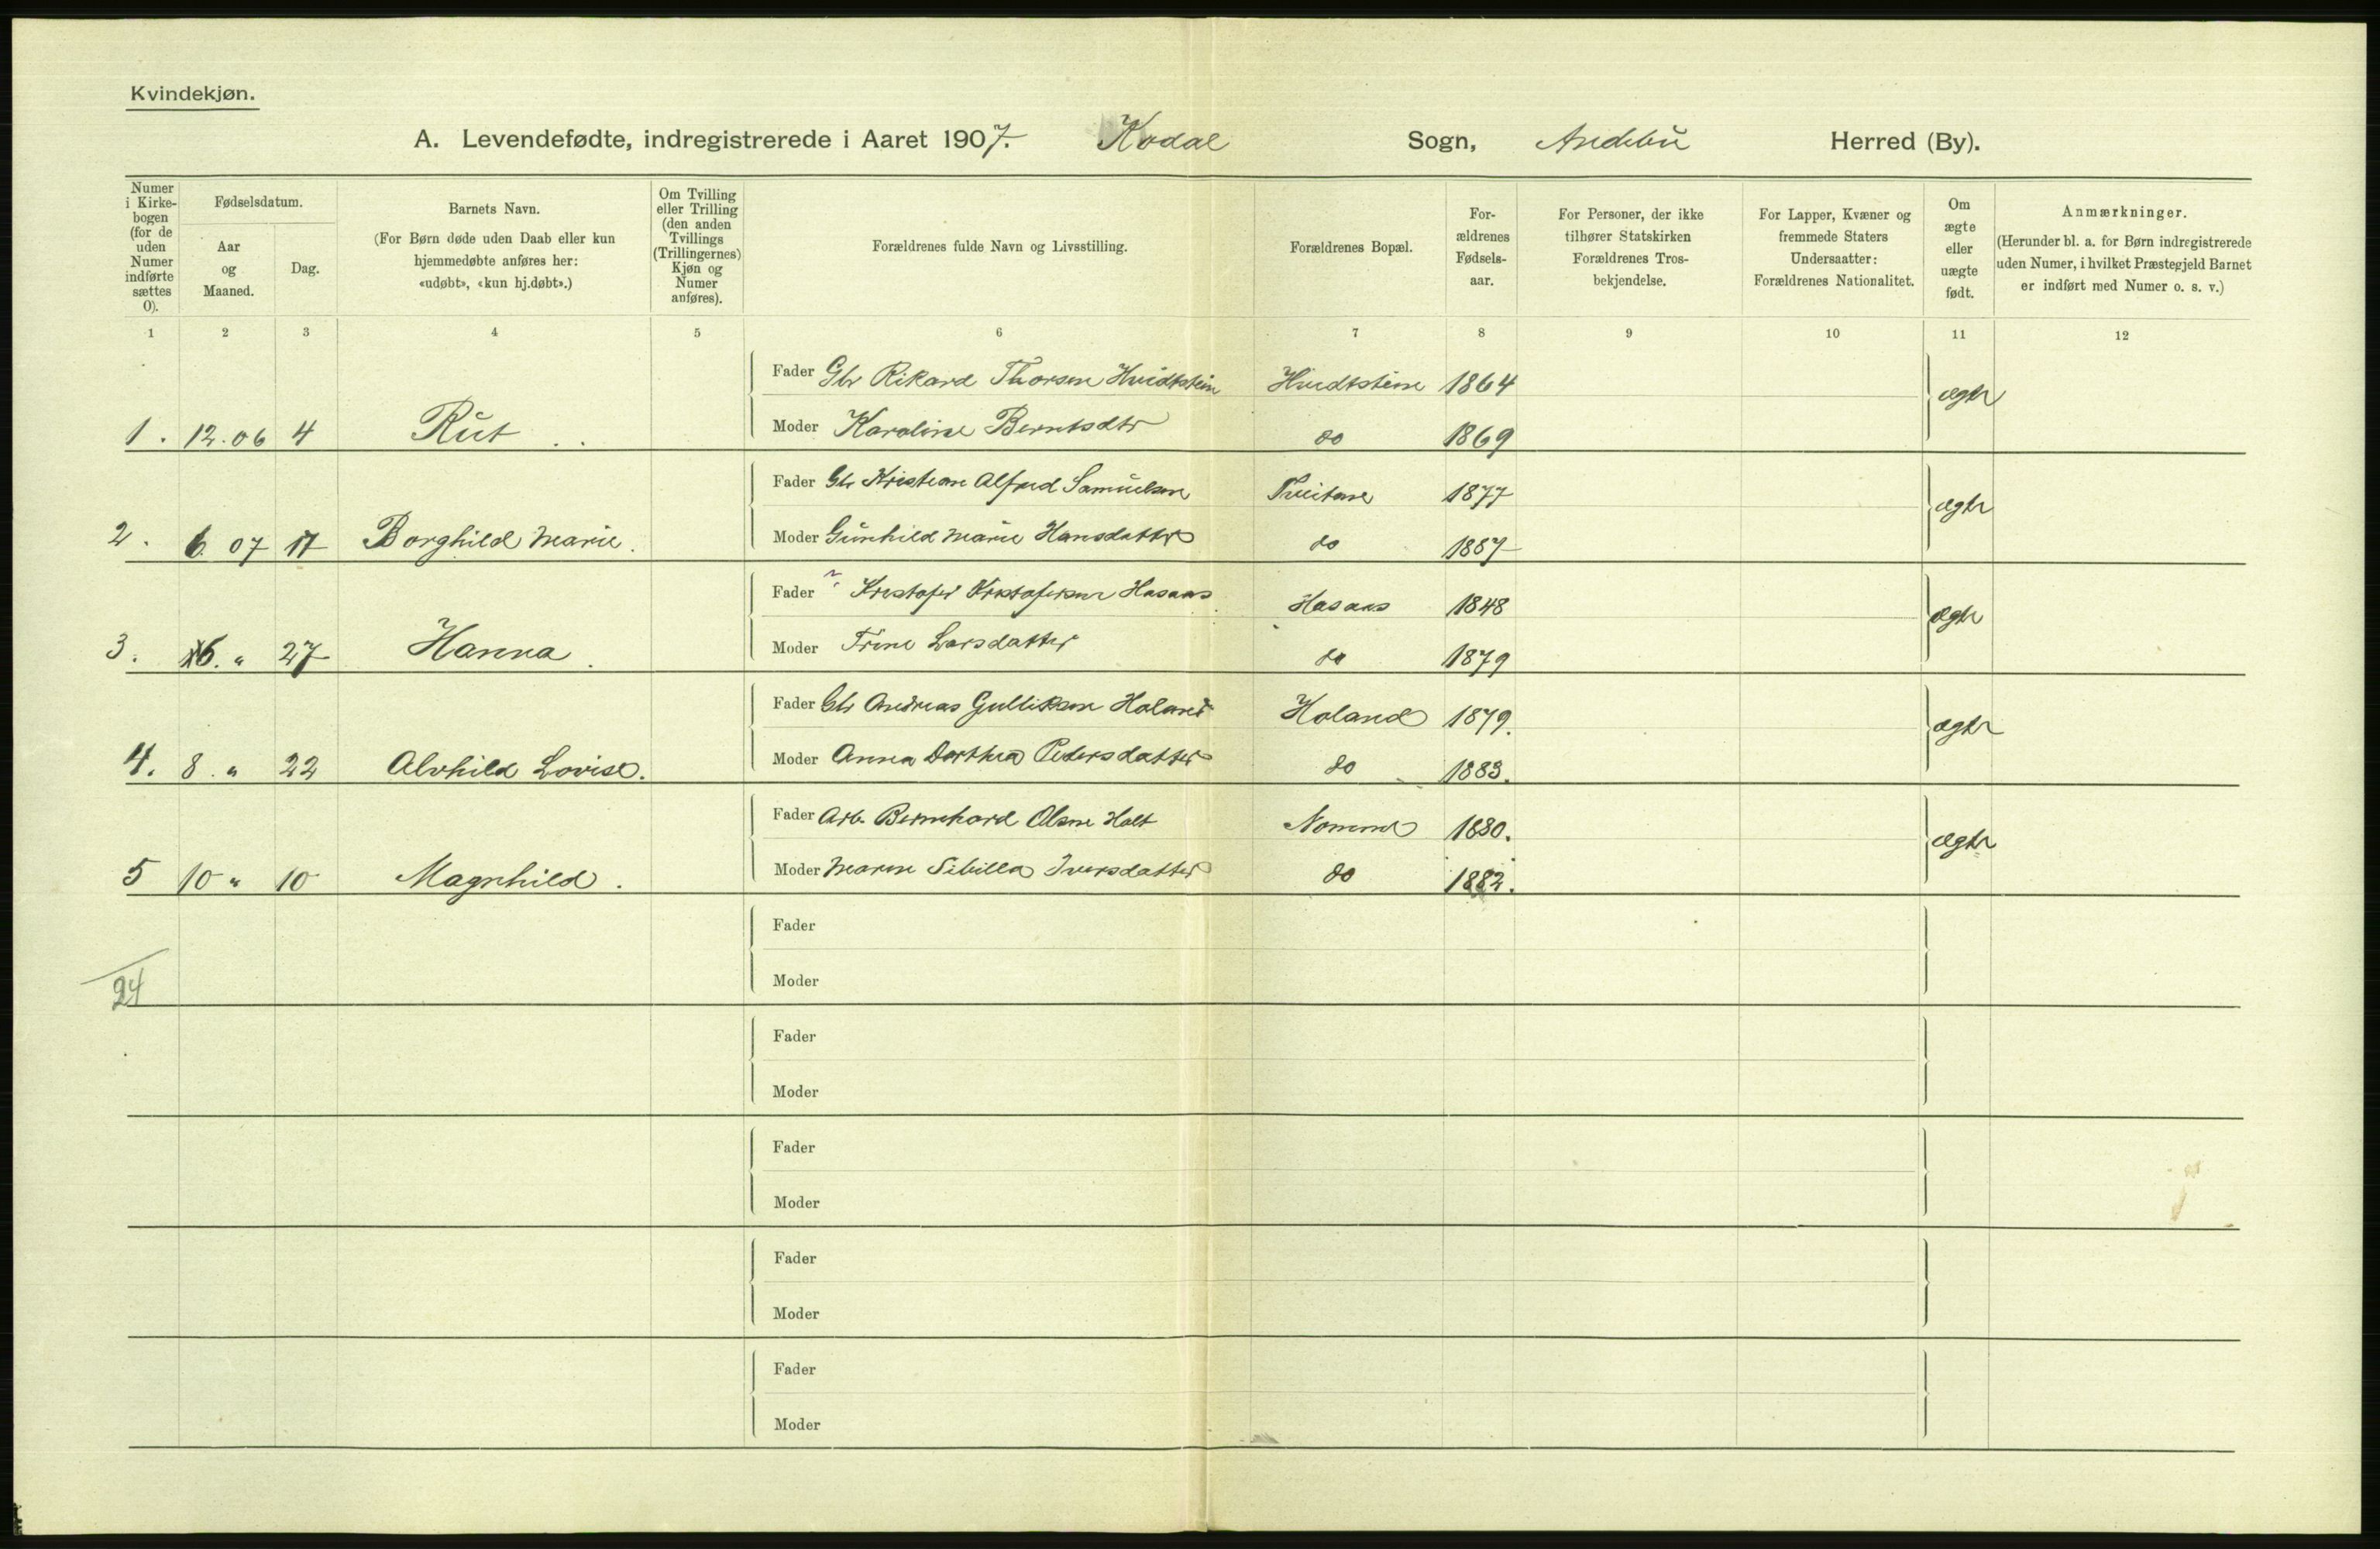 Kvindekjøn.
A. Levendefødte, indregistrerede i Aaret 1907. Kodal Sogn, Andebu Herred (By).
Numer i Kirkebogen (for de uden Numer indførte sættes 0).
Fødselsdatum.
Aar og Maaned.
Dag.
Barnets Navn.
(For Børn døde uden Daab eller kun hjemmedøbte anføres her: «udøbt», «kun hj.døbt».)
Om Tvilling eller Trilling (den anden Tvillings (Trillingernes) Kjøn og Numer anføres).
Forældrenes fulde Navn og Livsstilling.
Forældrenes Bopæl.
Forældrenes Fødselsaar.
For Personer, der ikke tilhører Statskirken Forældrenes Trosbekjendelse.
For Lapper, Kvæner og fremmede Staters Undersaatter: Forældrenes Nationalitet.
Om ægte eller uægte født.
Anmærkninger.
(Herunder bl. a. for Børn indregistrerede uden Numer, i hvilket Præstegjeld Barnet er indført med Numer o. s. v.)
1 2 3 4 5 6 7 8 9 10 11 12
Fader Gbr Rikard Thorsen Hvidtstein Hvidtstein 1864 ægte
1. 12.06 4 Rut Moder Karoline Berntsdtr do 1869
Fader Gbr Kristian Alfred Samuelsen 1877 ægte
2. 6. 07 17 Borghild Marie. Moder Gunhild Marie Hansdatter do 1887
Fader Kristofer Kristofersen Hasaas Hasaas 1848 ægte
3. 6. " 27 Hanna. Moder Trine Larsdatter do 1879
Fader Gbr Andreas Gulliksen Holand Holand 1879. ægte
4. 8. " 22 Alvhild Lovise. Moder Anna Dorthea Pedersdatter do 1883.
Fader Arb. Bernhard Olsen Holt 1880. ægte
5 10 " 10 Magnhild. Moder Maren Sibilla Iversdatter do 1882.
Fader
Moder
24
Fader
Moder
Fader
Moder
Fader
Moder
Fader
Moder